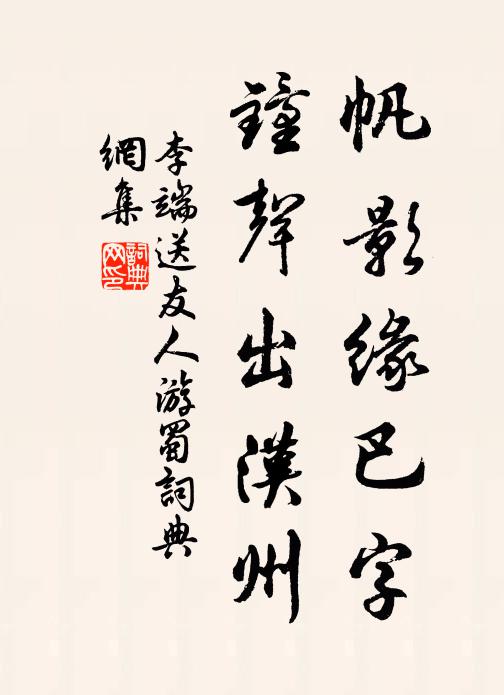 帆影緣巴字
鐘聲出漢州
李端送友人游蜀詞典
網集
詞典
网印